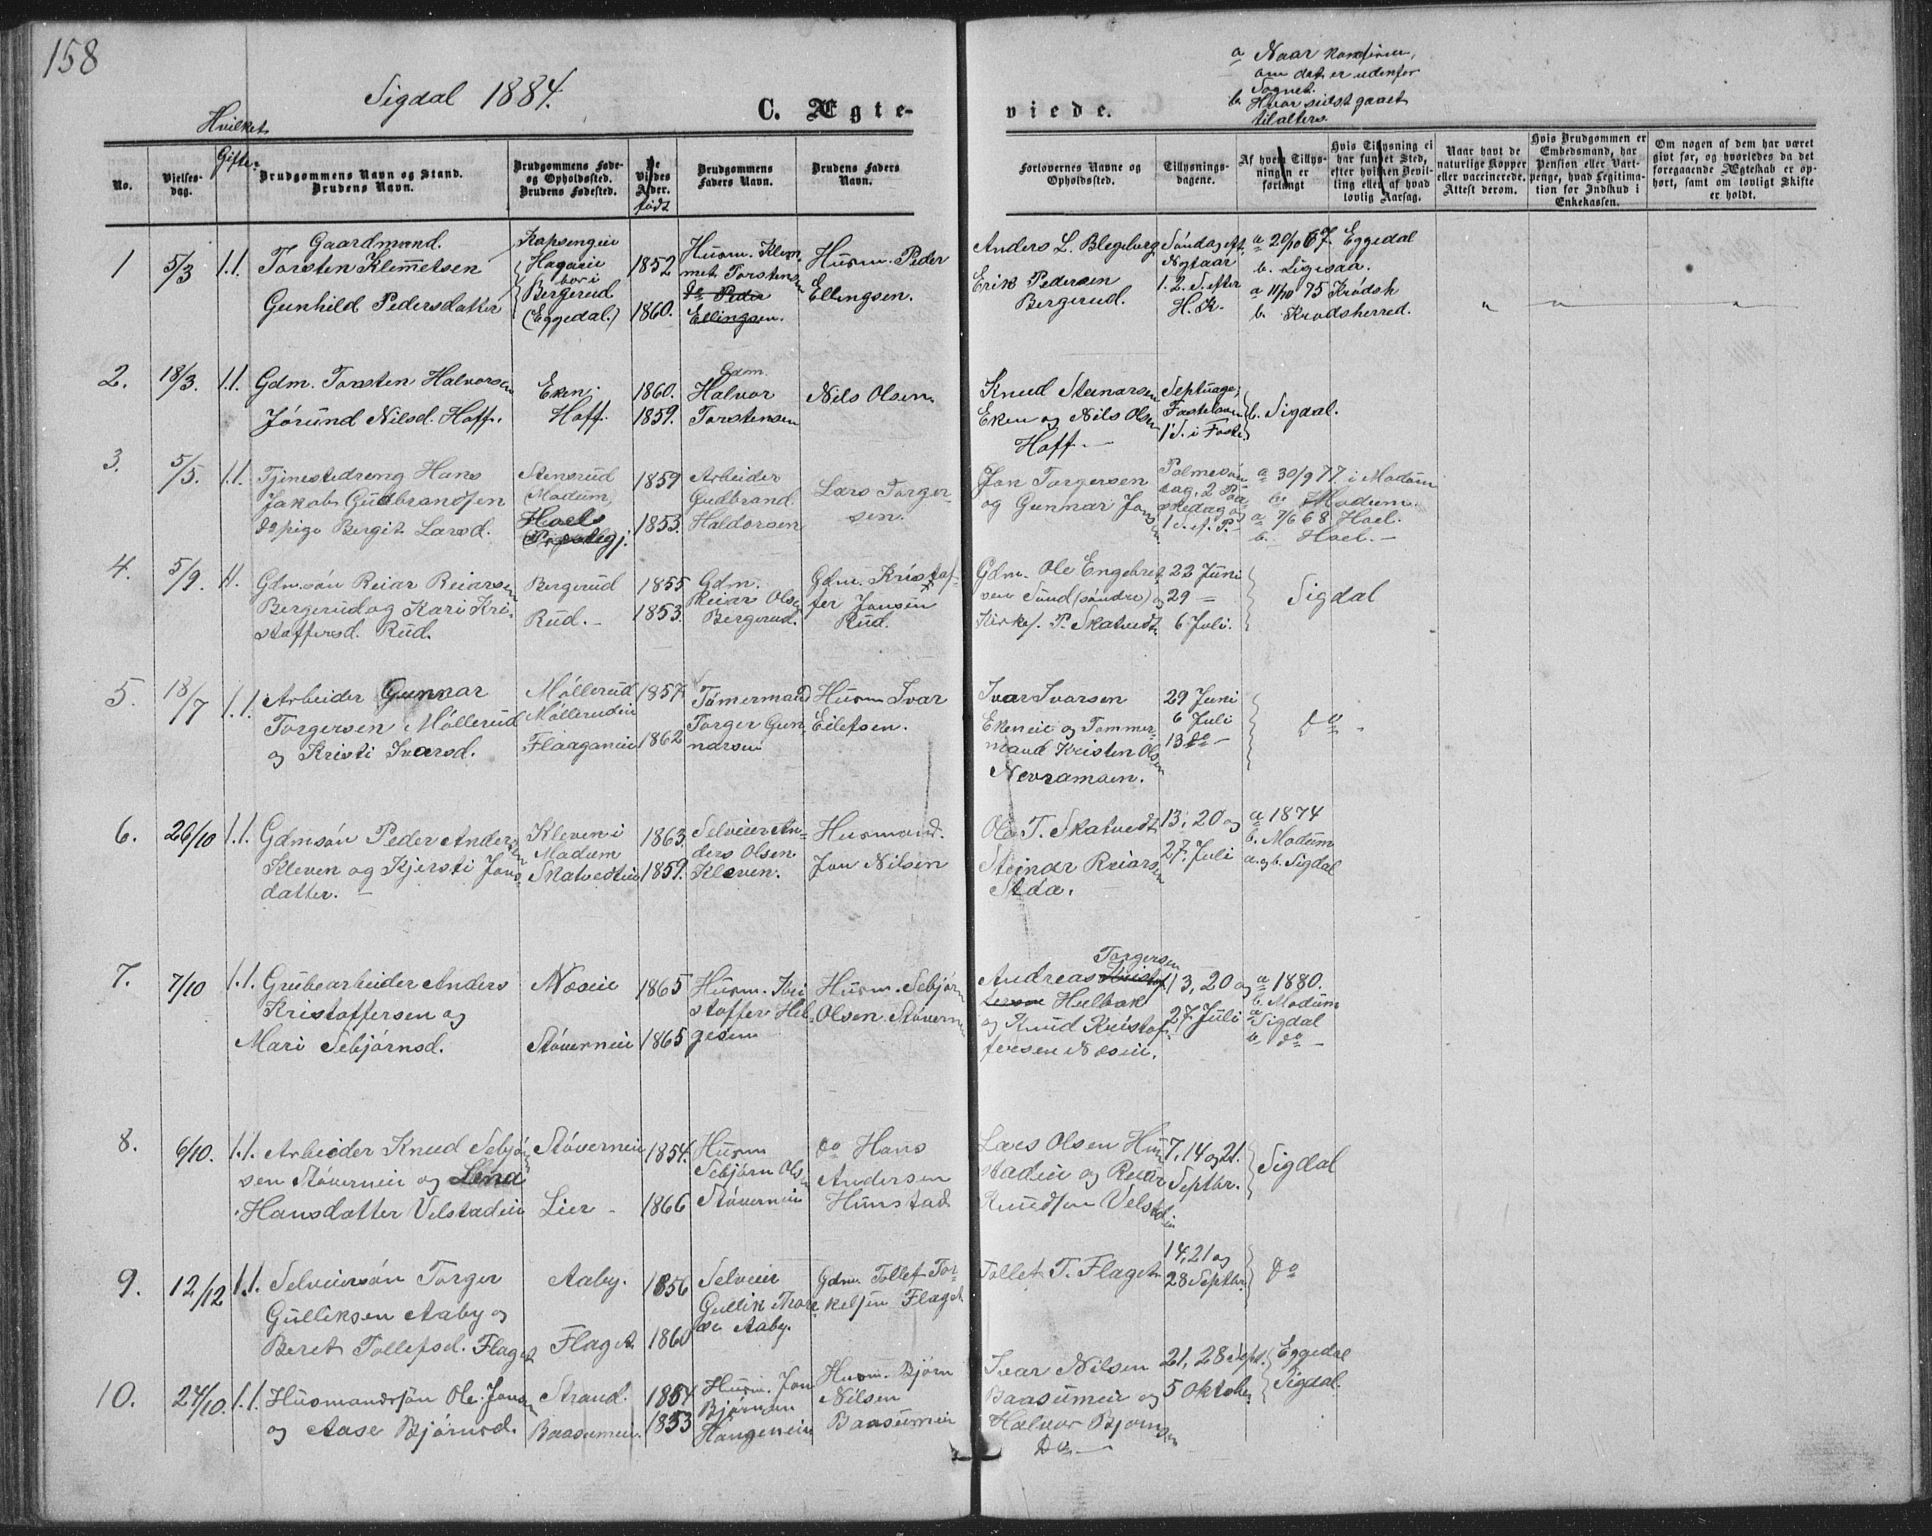 158
Sigdal 1884.
C. Ægte-
viede.
a Naar konfirm.
om det er udenfor
Sognet.
b. Hvor sidst gaaet
til alters.
Hvilket
Gifte.
No.
Vielses-
dag.
Brudgommens Navn og Stand.
Brudens Navn.
Brudgommens Føde-
og Opholdssted.
Brudens Fødested.
De
Viedes
Alder.
født
Brudgommens
Faders Navn.
Brudens Faders
Navn.
Forlovernes Navne og
Opholdssted.
Tillysnings-
dagene.
Af hvem Tillys-
ningen er
forlangt
Hvis Tillysning ei
har fundet Sted,
efter hvilken Bevil-
ling eller af hvad
lovlig Aarsag.
Naar havt de
naturlige Kopper
eller vaccinerede.
Attest derom.
Hvis Brudgommen er
Embedsmand, har
Pension eller Vart-
penge, hvad Legitima-
tion for Indskud i
Enkekassen.
Om nogen af dem har været
gift før, og hvorledes da det
foregaaende Ægteskab er op-
hørt, samt om lovligt Skifte
er holdt.
1
5/3
1.1.
Gaardmand.
Torsten Klemmetsen
Gunhild Pedersdatter
Hagaeie
bor i
Bergerud
(Eggedal.)
1852
1860.
Husm. Klem-
met Torstensen
do Peder
Ellingsen.
Husm. Peder
Ellingsen.
Anders L. Blegeberg
Erik Pedersen
Bergerud.
Søndag eft.
Nytaar
1. 2. S. efter
H. K.
a 20/10 67. Eggedal
b. Ligesaa.
a 11/10 75 Krødsh
b. Krødsherred.
2.
18/3.
1.1.
Gdm. Torsten Halvorsen
Jørund Nilsd. Hoff.
Eken
Hoff.
1860.
1859.
Gdm.
Halvor
Torstensen
Nils Olsen
Knud Steinarsen
Eken og Nils Olsen
Hoff. —
Septuage,
Fastelavn
1 S. i Faste
b. Sigdal.
3.
5/5.
1.1.
Tjenestedreng Hans
Jakob Gudbrandsen
do pige Bergit Larsd.
Stensrud
Modum
Hoels
Præstegj.
1859
1853.
Arbeider
Gudbrand
Haldorsen
Lars Torger-
sen.
Jon Torgersen
og Gunnar Jonsen
Palmesøn-
dag, 2 Paa-
skedag og
1 S. ef. P.
a 30/9 77. i Modum
b. Modum.
a 7/6 68 Hoel.
b. Hoel. —
4.
5/9.
1.1.
Gdm.søn Reiar Reiarsen
Bergerud og Kari Kri-
stoffersd. Rud.
Bergerud
Rud. —
1855
1853.
Gdm.
Reiar Olsen
Bergerud.
Gdm. Kristof-
fer Jonsen
Rud.
Gdm. Ole Engebret-
sen Sund (søndre) og
Kirkes. P. Skatvedt.
22 Juni
29 —
6 Juli.
Sigdal
5.
18/7
1.1.
Arbeider Gunnar
Torgersen Møllerud
og Kristi Ivarsd.
Møllerud
Møllerudeie
Flaaganeie
1857
1862
Tømermand
Torger Gun-
narsen
Husm Ivar
Eilefsen.
Ivar Ivarsen
Ekeneie og Tømmer-
mand Kristen Olsen
Nevramoen.
29 Juni
6 Juli
13 do —
do —
6.
26/10
1.1.
Gdmsøn Peder Andersen
Kleven og Kjersti Jons-
datter. —
Kleven i
Modum
Skatvedteie
1863.
1859.
Selveier An-
ders Olsen
Kleven.
Husmand.
Jon Nilsen
Ole T. Skatvedt
Steinar Reiarsen
Staa.
13, 20 og
27. Juli
a 1874
b. Modum
a. og b. Sigdal
7.
7/10
1.1.
Grubearbeider Anders
Kristoffersen og
Mari Sebjørnsd.
Næseie
Støverneie
1865
1865
Husm. Kri-
stoffer Hel-
gesen
Husm. Sebjørn
Olsen Støvern
Torgersen
Andreas Kristof-
fersen Hulbak
og Knud Kristof-
fersen Næseie.
13, 20 og
27 Juli
a 1880.
b. Modum
a Sigdal
b do —
8.
6/10.
1.1.
Arbeider Knud Sebjørn-
sen Støverneie og Lena
Hansdatter Velstadeie
Støverneie
Lier —
1854.
1866
Husm
Sebjørn Olsen
Støverneie
do Hans
Andersen
Hunstad
Lars Olsen Hun-
stadeie og Reiar
Knudsen Velstadeie
7, 14 og 21.
Septbr.
Sigdal
9.
12/12
1.1.
Selveiersøn Torger
Gulliksen Aaby og
Beret Tollefsd. Flaget
Aaby.
Flaget
1856
1860
Selveier
Gullik Thore-
sen Aaby.
Gdm. Tollef Tor-
kelsen Flaget
Tollef T. Flaget
14, 21 og
28 Septbr.
do
10.
24/10.
1.1.
Husmandssøn Ole Jonsen
og Aase Bjørnsd.
Strand.
Baasumeie.
1854.
1853
Husm. Jon
Bjørnsen
Haugeneie
Husm. Bjørn
Nilsen
Baasumeie
Ivar Nilsen
Baasumeie og
Halvor Bjørnsen
Do —
21, 28 Sept.
5 Oktober
Eggedal
Sigdal.